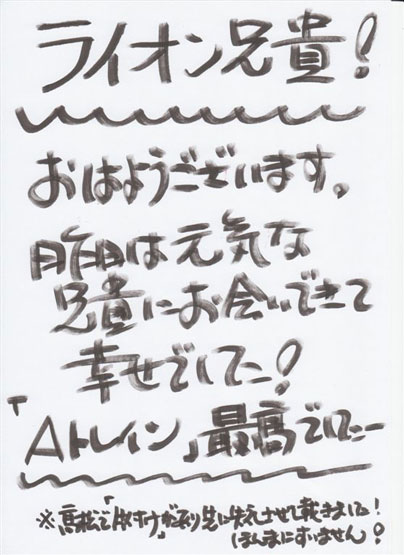 ライオン兄貴!
おはようございます。
昨日は元気な
兄貴にお会いできて
幸せでした!
「Aトレイン」最高でしたー
※高松で「片付け」があり先に失礼させて戴きました!
ほんまにすいません!